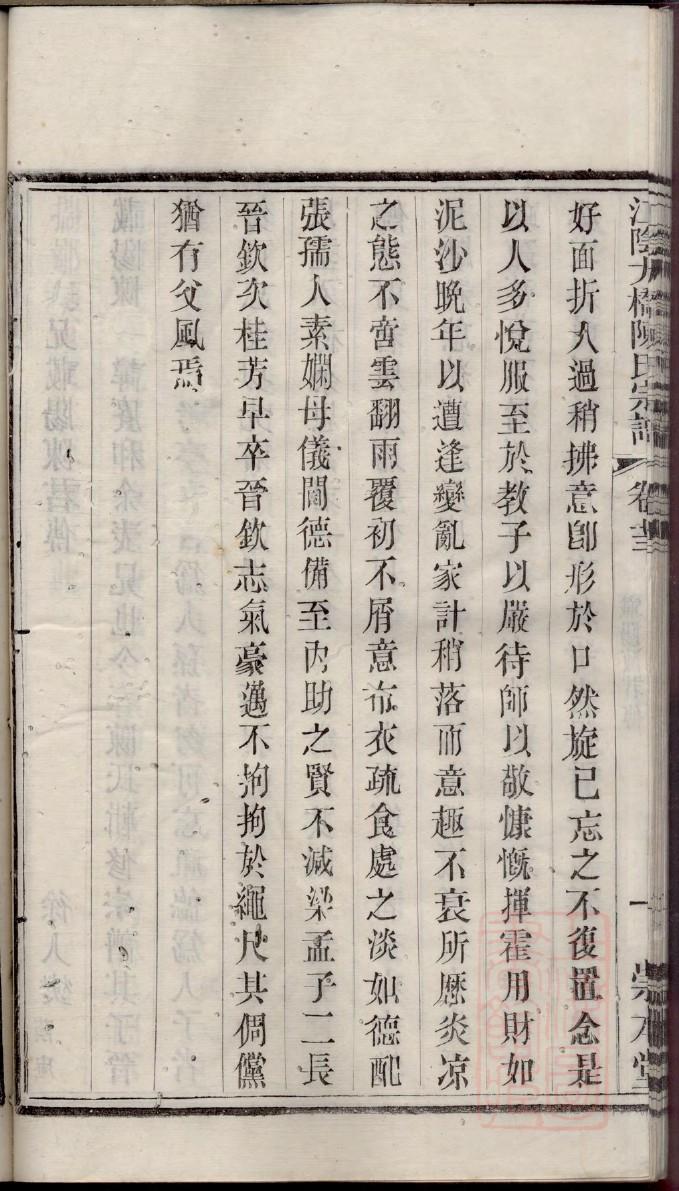 江陰九橋陳氏宗譜 卷十三 一 崇本堂
好面折人過稍拂意卽形於口然旋已忘之不復置念是
以人多悅服至於教子以嚴待師以敬慷慨揮霍用財如
泥沙晚年以遭逢變亂家計稍落而意趣不衰所歷炎凉
之態不啻雲翻雨覆初不屑意布衣疏食處之淡如德配
張孺人素嫻母儀閫德備至內助之賢不減梁孟子二長
晉欽次桂芳早卒晉欽志氣豪邁不拘拘於繩尺其倜儻
猶有父風焉